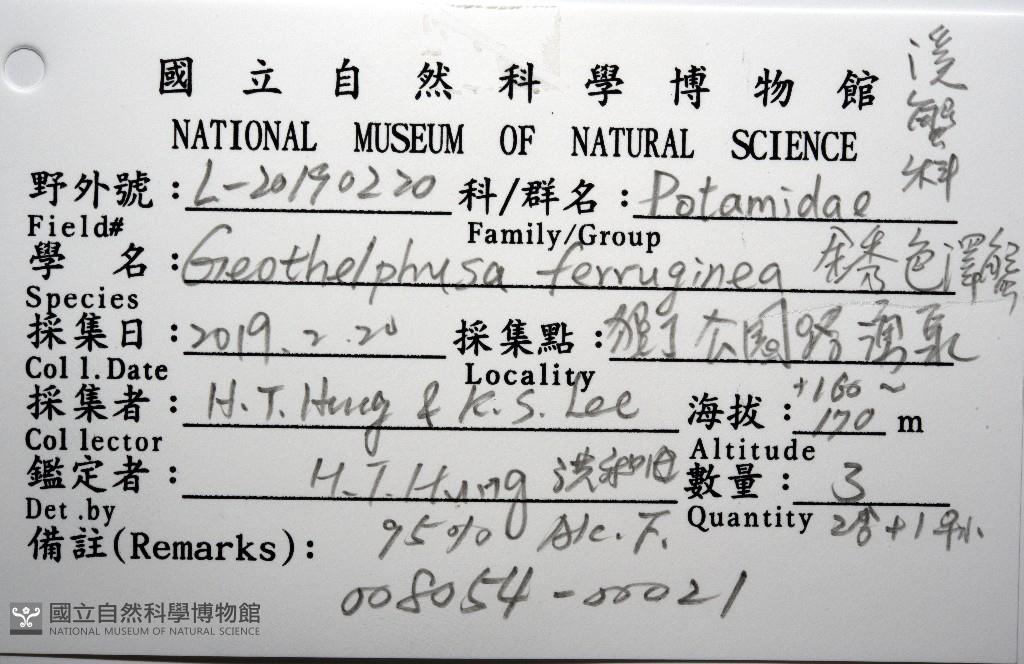 國立自然科學博物館
溪蟹科
NATIONAL MUSEUM OF NATURAL SCIENCE
野外號：L-20190220 科/群名：Potamidae
Field# Family/Group
學名：Geothelphusa ferruginea 銹色澤蟹
Species
採集日：2019.2.20 採集點：猴子公園 湧泉
Coll.Date Locality
採集者：H.T. Hung & K.S. Lee 海拔：+160~170 m
Collector Altitude
鑑定者：H.T. Hung 洪和田 數量：3
Det.by Quantity 2含+1
備註(Remarks)：95% Alc. F.
008054-00021
國立自然科學博物館
NATIONAL MUSEUM OF NATURAL SCIENCE